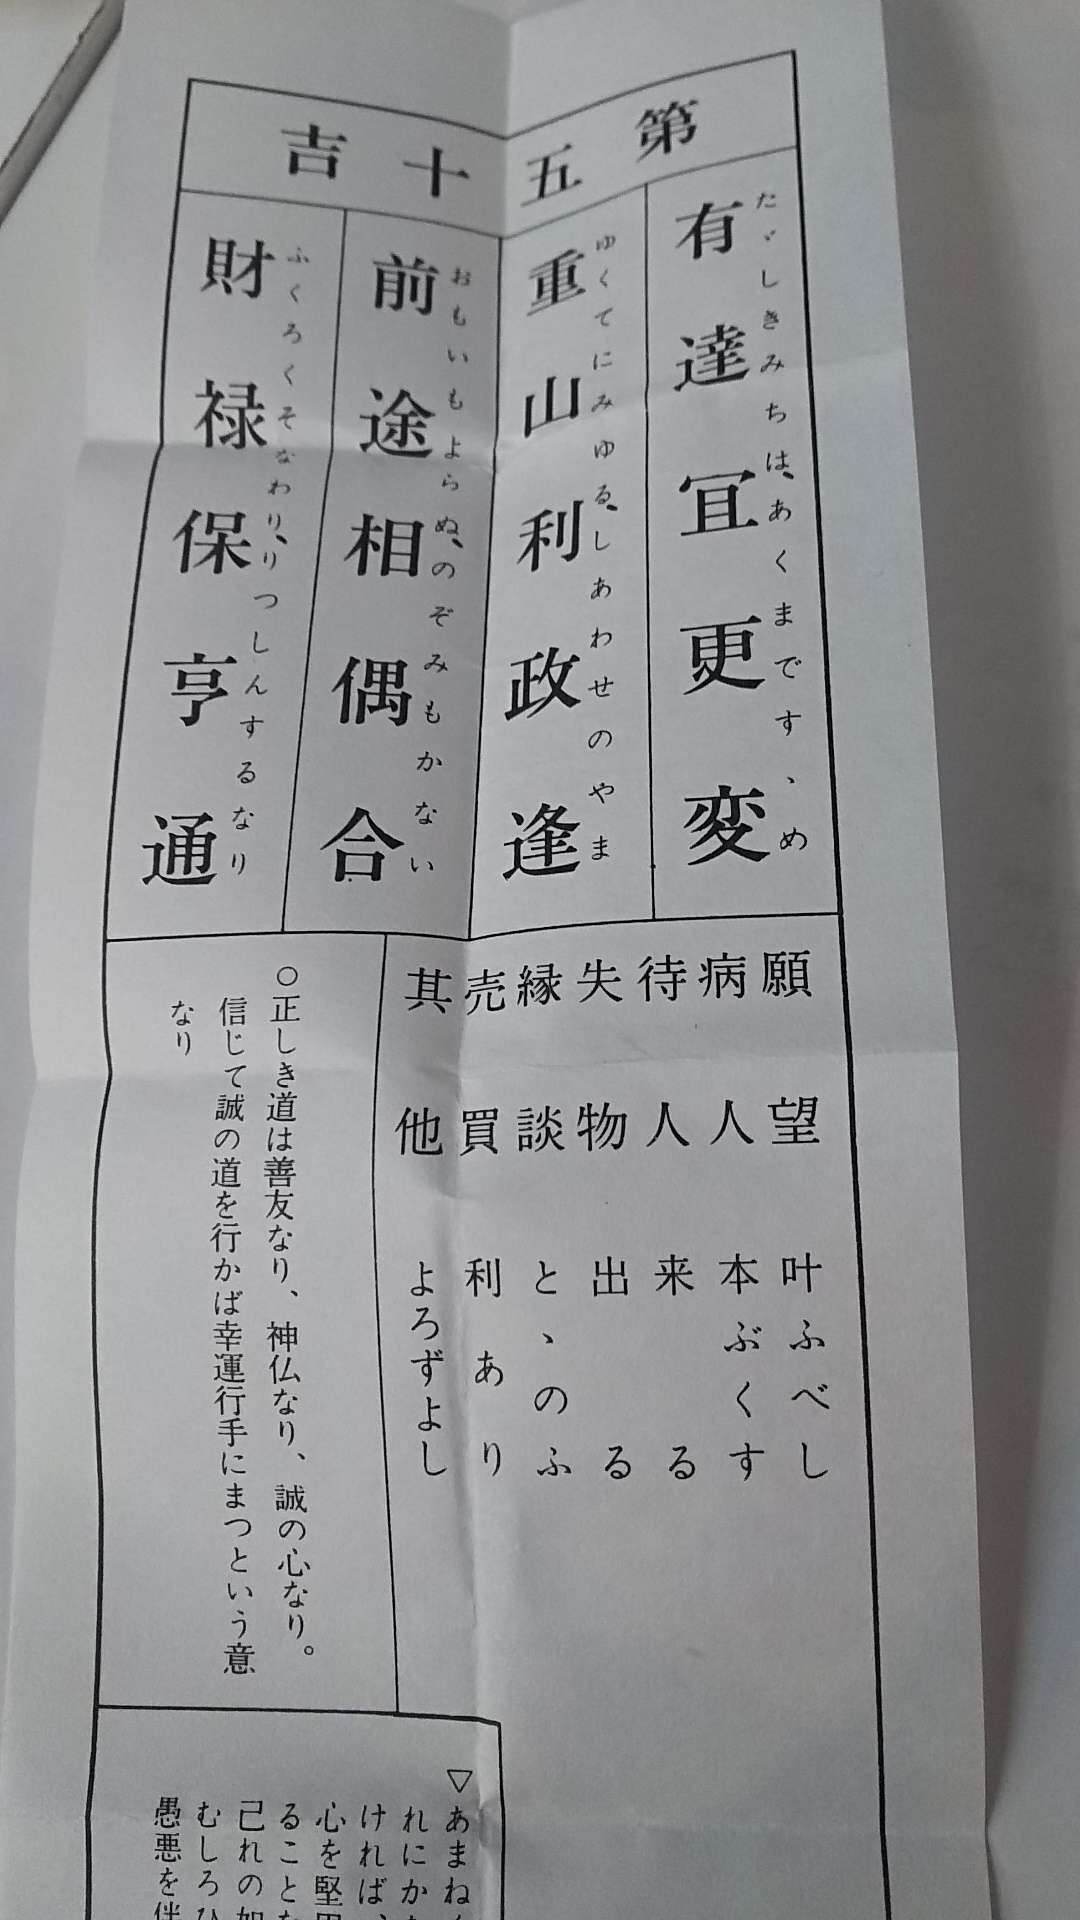 第五十吉
有達冝更変
たゞしきみちは、あくまです、め
重山利政逢
ゆくてにみゆる、しあわせのやま
前途相偶合
おもいもよらぬ、のぞみもかない
財禄保亨通
ふくろくそなわり、りつしんするなり
願望 叶ふべし
病人 本ぶくす
待人 来る
失物 出る
縁談 と、のふ
売買 利あり
其他 よろずよし
○正しき道は善友なり、神仏なり、誠の心なり。
信じて誠の道を行かば幸運行手にまつという意
なり
▽あまねく
れにか
ければ、
心を堅
ること
己れの如
むしろひ
愚悪を伴